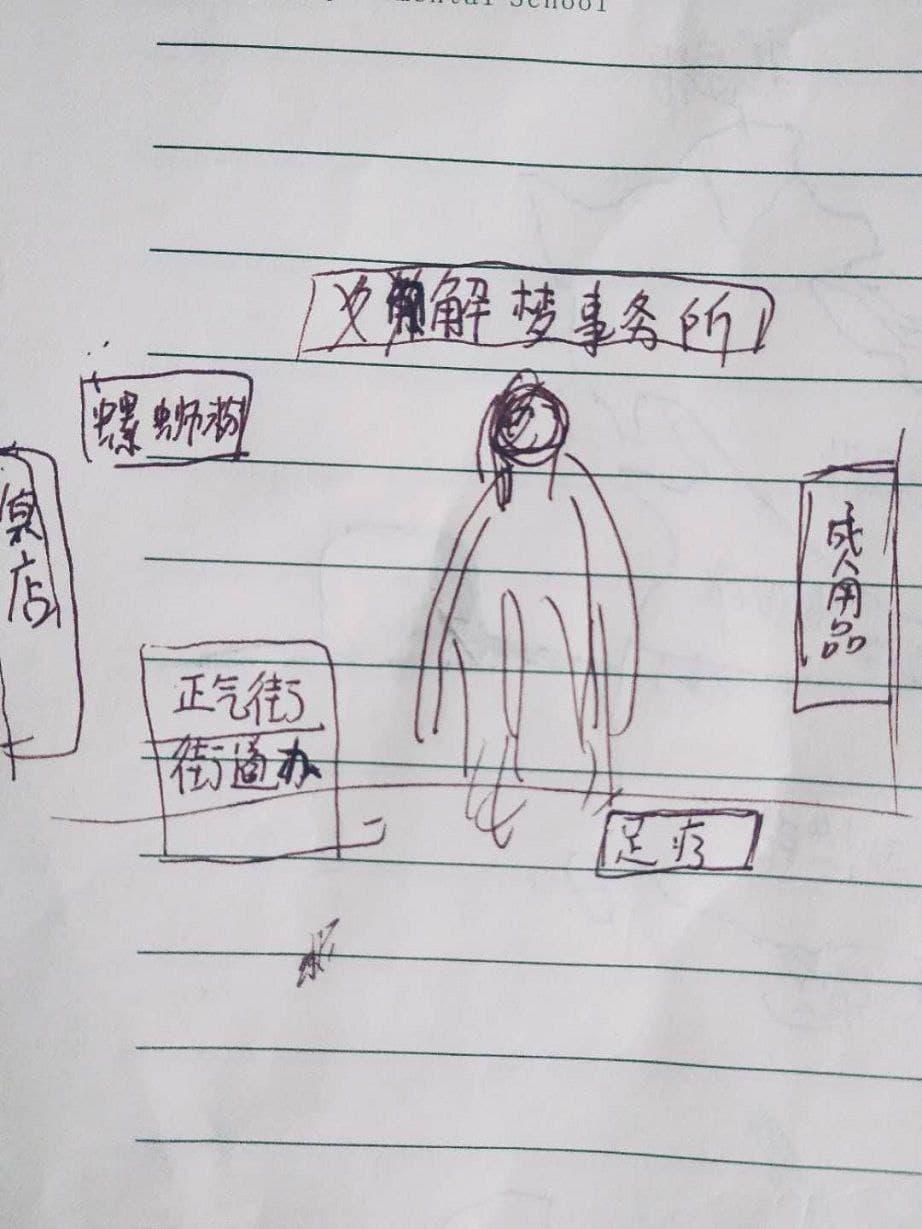 School
解梦事务所
螺蛳粉
店
成人用品
正气街
街道办
足疗